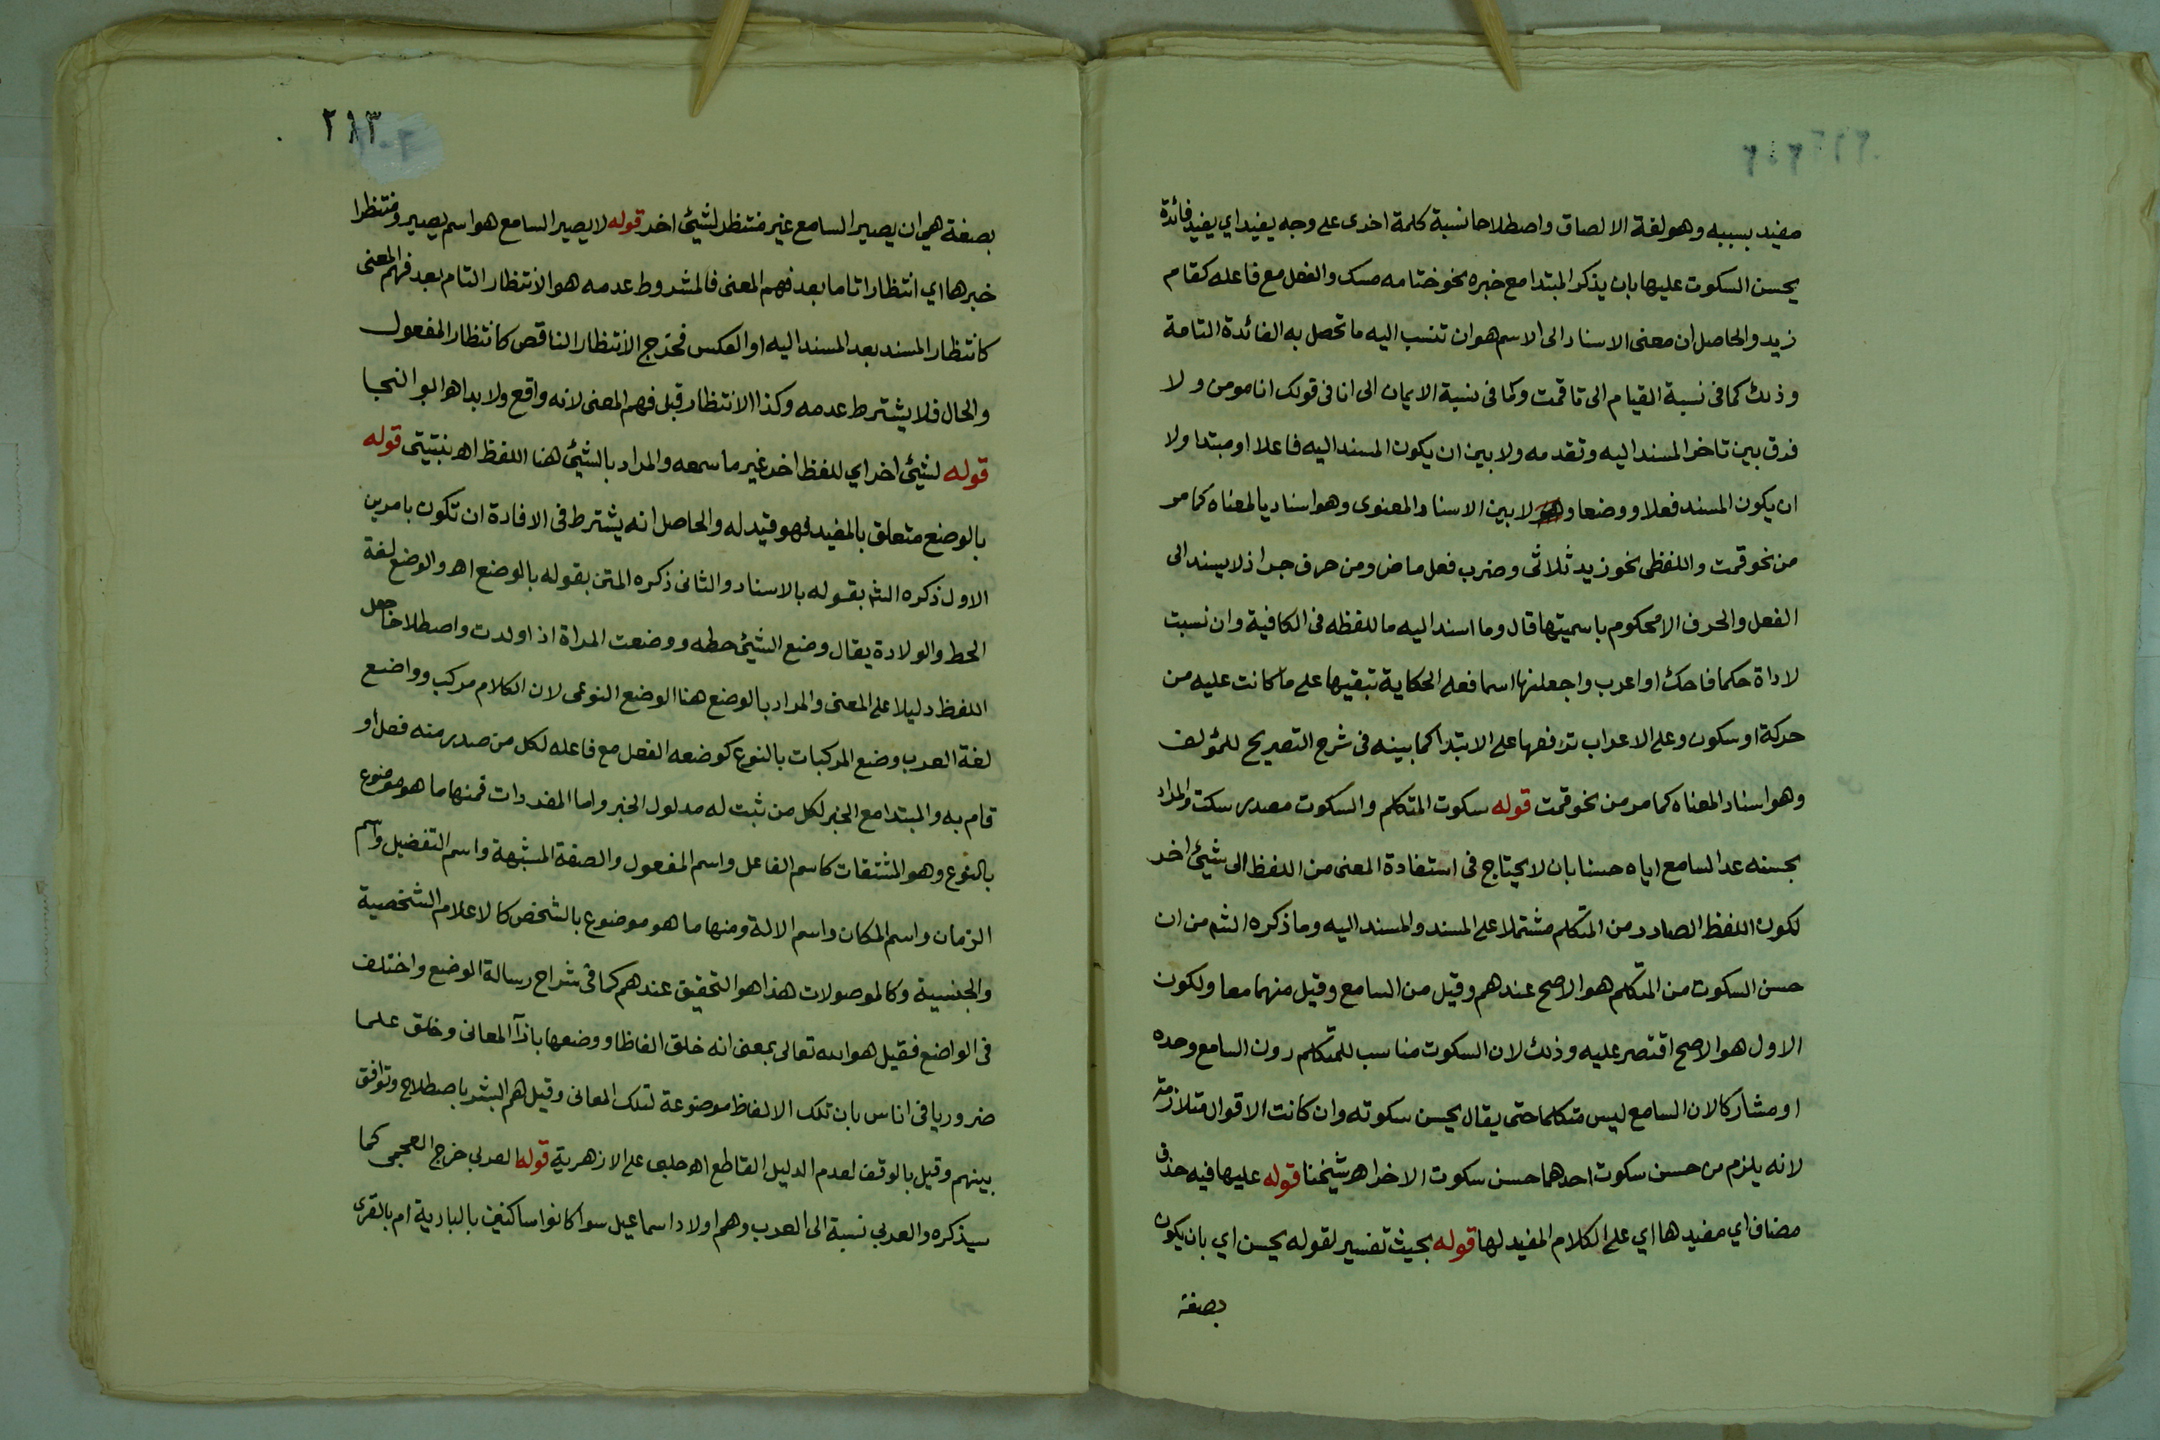 مفيد بسببه وهو لغة الالصاق واصطلاحا نسبة كلمة اخرى على وجه يفيد اي يفيد فائدة
يحسن السكوت عليها بان يذكر المبتدا مع خبره نحو ختامه مسك والفعل مع فاعله كقام
زيد والحاصل ان معنى الاسناد الى الاسم هو ان تنسب اليه ما تحصل به الفائدة التامة
وذلك كما في نسبة القيام الى تا قمت وكما في نسبة الايمان الى انا في قولك انا مومن ولا
فرق بين تاخر المسند اليه وتقدمه ولا بين ان يكون المسند اليه فاعلا او مبتدا ولا
ان يكون المسند فعلا ووضعا ولا بين الاسناد المعنوي وهو اسناد يالمعناه كما مر
من نحو قمت واللفظي نحو زيد ثلاثي وضرب فعل ماض ومن حرف جر اذ لا يسند الى
الفعل والحرف الا محكوم باسميتها قال وما اسند اليه ما للفظه في الكافية وان نسبت
لاداة حكما فاحك او اعرب واجعلنها اسما فعلى الحكاية تبقيها على ما كانت عليه من
حركة او سكون وعلى الاعراب ترفعها على الابتدا كما بينه في شرح التصريح للمؤلف
وهو اسناد المعناه كما مر من نحو قمت قوله سكوت المتكلم والسكوت مصدر سكت والمراد
بحسنه عد السامع اياه حسنا بان لا يحتاج في استفادة المعنى من اللفظ الى شيئ اخر
لكون اللفظ الصادر من المتكلم مشتملا على المسند والمسند اليه وما ذكره الشم من ان
حسن السكوت من المتكلم هو الاصح عندهم وقيل من السامع وقيل منهما معا ولكون
الاول هو الاصح اقتصر عليه وذلك لان السكوت مناسب للمتكلم دون السامع وحده
او مشاركا لان السامع ليس متكلما حتى يقال يحسن سكوته وان كانت الاقوال متلازمة
لانه يلزم من حسن سكوت احدهما حسن سكوت الاخر اهـ شيخنا قوله عليها فيه حذف
مضاف اي مفيدها اي على الكلام المفيد لها قوله بحيث تفسير لقوله يحسن اي بان يكون
بصفة
٢٨٣
بصفة هي ان يصير السامع غير منتظر لشيئ اخر قوله لا يصير السامع هو اسم يصير ومنتظرا
خبرها اي انتظارا تاما بعد فهم المعنى فالمشروط عدمه هو الانتظار التام بعد فهم المعنى
كانتظار المسند بعد المسند اليه او العكس فخرج الانتظار الناقص كانتظار المفعول
والحال فلا يشترط عدمه وكذا الانتظار قبل فهم المعنى لانه واقع ولا بد اهـ ابو النجا
قوله لشيئ اخر اي للفظ اخر غير ما سمعه والمراد بالشيئ هنا اللفظ اهـ نبتيتى قوله
بالوضع متعلق بالمفيد فهو قيد له والحاصل انه يشترط في الافادة ان تكون بامرين
الاول ذكره الشم بقوله بالاسناد والثاني ذكره المتن بقوله بالوضع اهـ والوضع لغة
الحط والولادة يقال وضع الشيئ حطه ووضعت المراة اذا ولدت واصطلاحا جعل
اللفظ دليلا على المعنى والمراد بالوضع هنا الوضع النوعي لان الكلام مركب وواضع
لغة العرب وضع المركبات بالنوع كوضعه الفعل مع فاعله لكل من صدر منه فعل او
قام به والمبتدا مع الخبر لكل من ثبت له مدلول الخبر واما المفردات فمنها ما هو موضوع
بالنوع وهو المشتقات كاسم الفاعل واسم المفعول والصفة المشبهة واسم التفضيل واسم
الزمان واسم المكان واسم الالة ومنها ما هو موضوع بالشخص كالاعلام الشخصية
والجنسية وكالموصولات هذا هو التحقيق عندهم كما في شراح رسالة الوضع واختلف
في الواضع فقيل هو الله تعالى بمعنى انه خلق الفاظا ووضعها بازآ المعاني وخلق علما
ضروريا في اناس بان تلك الالفاظ موضوعة لتلك المعاني وقيل هم البشر باصطلاح وتوافق
بينهم وقيل بالوقف لعدم الدليل القاطع اهـ حلبي على الازهرية قوله العربي خرج العجمي كما
سيذكره والعربي نسبة الى العرب وهم اولاد اسماعيل سوا كانوا ساكنين بالبادية ام بالقرى